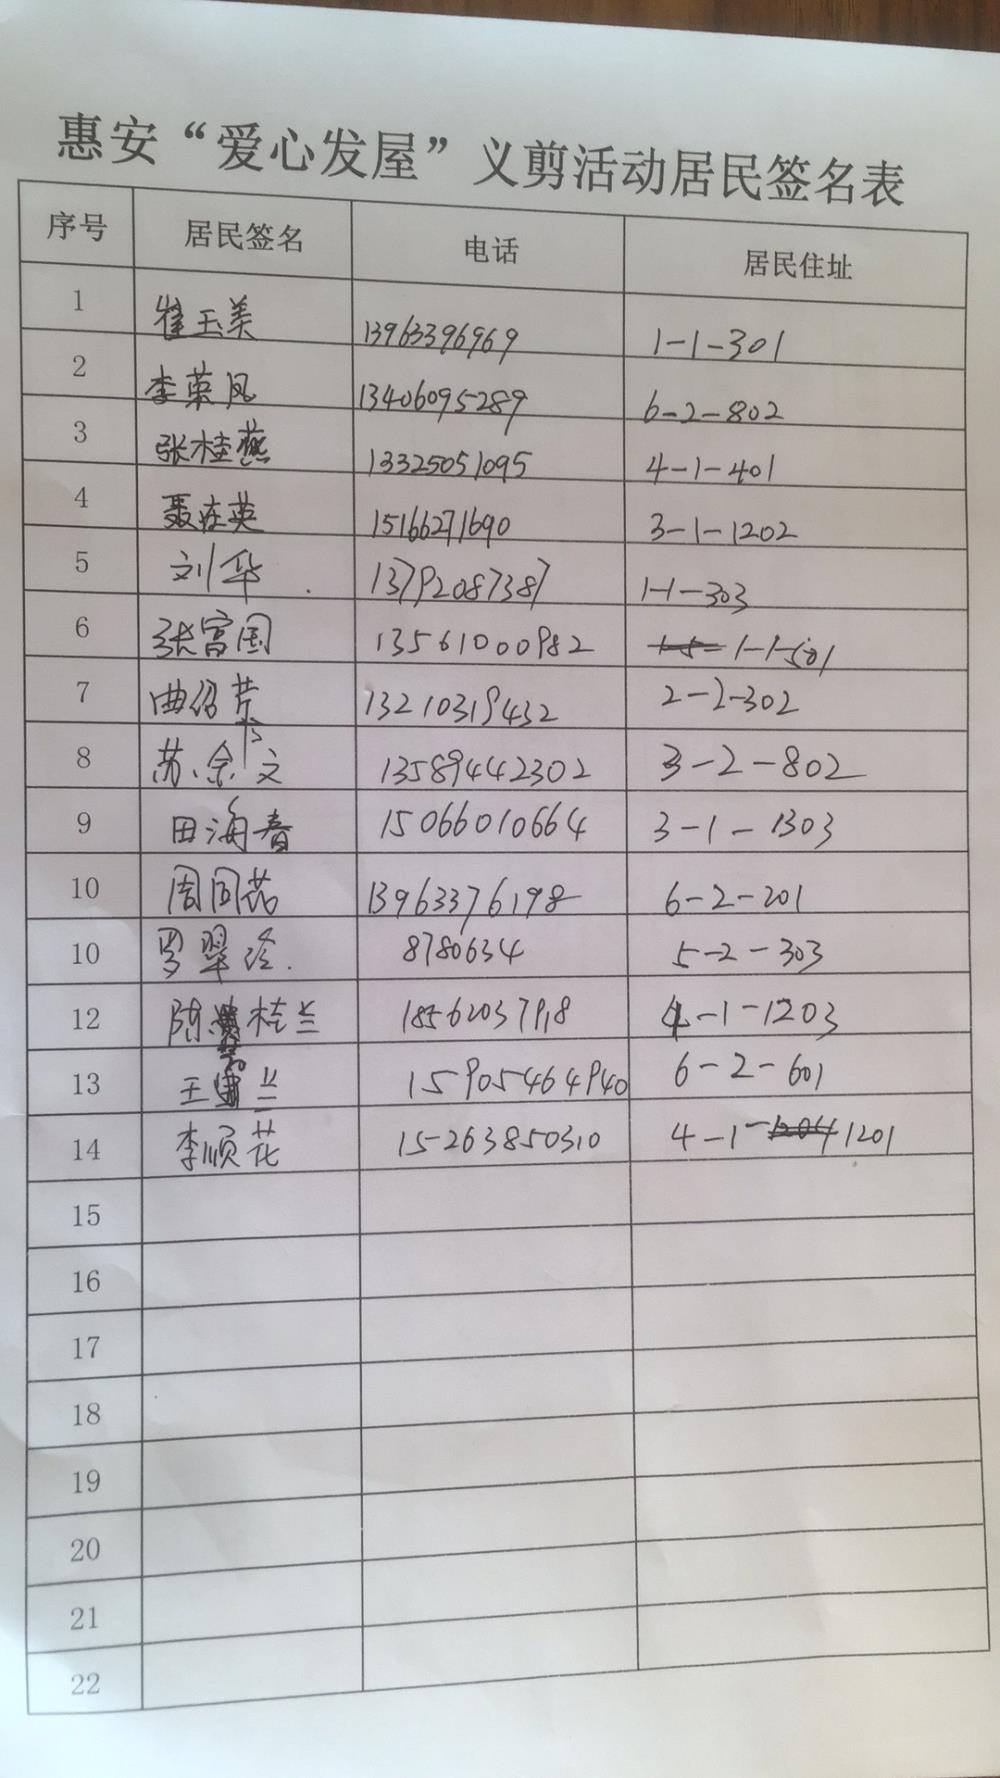 惠安“爱心发屋”义剪活动居民签名表
序号 居民签名 电话 居民住址
1 崔玉美 13963396969 1-1-301
2 李荣凤 13406095289 6-2-802
3 张桂燕 13325051095 4-1-401
4 聂在英 15166271690 3-1-1202
5 刘华 13792087387 1-1-303
6 张富国 13561000982 1-1-501
7 曲绍芹 13210319432 2-2-302
8 苏余文 13589442302 3-2-802
9 田海春 15066010664 3-1-1303
10 周同花 13963376198 6-2-201
10 罗翠玲 8780634 5-2-303
12 陈桂兰 18562037918 4-1-1203
13 王兰 15905464940 6-2-601
14 李顺花 15263850310 4-1-1201
15
16
17
18
19
20
21
22